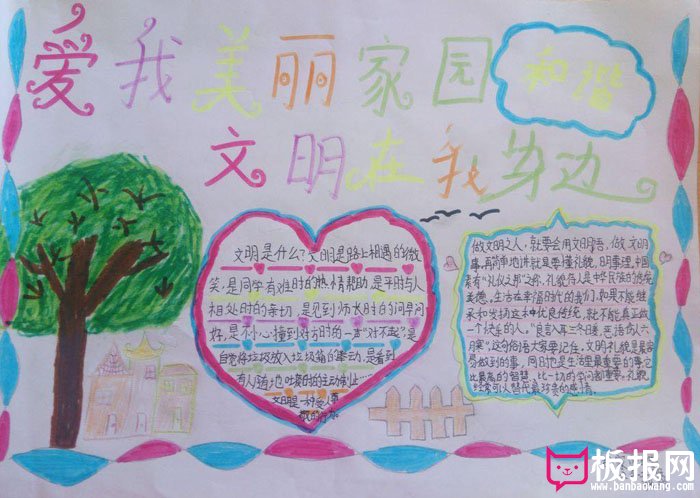 爱我美丽家园
和谐
文明在我身边
文明是什么?文明是路上相遇的微
笑,是同学有难时的热情帮助,是平时与人
相处时的亲切,是见到师长时的问早问
好,是不小心撞到对方时的一声"对不起",是
自觉将垃圾放入垃圾箱的举动,是看到
有人随地吐痰时的主动制止……
文明是一种受人尊
敬的行为
做文明之人,就要会用文明语,做文明
事,再简单地讲就是要懂礼貌,明事理。中国
素有"礼仪之邦"之称,礼貌待人是中华民族的传统
美德。生活在幸福时代的我们,如果不能继
承和发扬这种优良传统,就不能真正做
一个快乐的人。"良言入耳三冬暖,恶语伤人六
月寒",这句俗语大家要记住,文明礼貌是最容
易做到的事,同时也是生活里最重要的事,它
比最高的智慧,比一切的学问都重要。礼貌
经常可以替代最珍贵的感情。
板报网
www.banbaowang.com